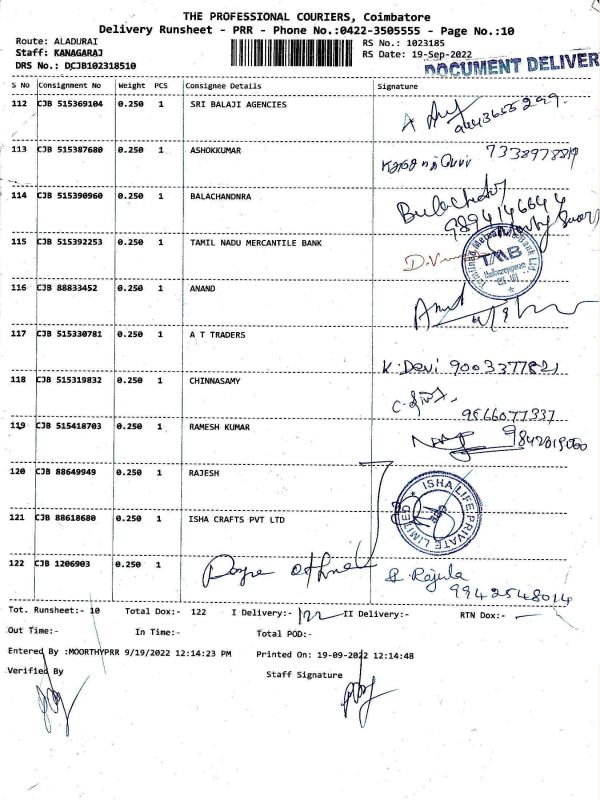 THE PROFESSIONAL COURIERS, Coimbatore
Delivery Runsheet - PRR - Phone No.:0422-3505555 - Page No.:10
Route: ALADURAI
RS No.: 1023185
Staff: KANAGARAJ
RS Date: 19-Sep-2022
DRS No.: DCJB102318510
DOCUMENT DELIVER
S No Consignment No Weight PCS Consignee Details Signature
112 CJB 515369104 0.250 1 SRI BALAJI AGENCIES
9443655299.
113 CJB 515387680 0.250 1 ASHOKKUMAR
114 CJB 515390960 0.250 1 BALACHANDNRA
9894146644
115 CJB 515392253 0.250 1 TAMIL NADU MERCANTILE BANK
TMB
116 CJB 88833452 0.250 1 ANAND
117 CJB 515330781 0.250 1 A T TRADERS
K. Devi 9003377821
118 CJB 515319832 0.250 1 CHINNASAMY
9566077337
119 CJB 515418703 0.250 1 RAMESH KUMAR
120 CJB 88649949 0.250 1 RAJESH
ISHA LIFE PRIVATE LIMITED
121 CJB 88618680 0.250 1 ISHA CRAFTS PVT LTD
122 CJB 1206903 0.250 1
Rajula
9942548014
Tot. Runsheet:- 10 Total Dox:- 122 I Delivery:- II Delivery:- RTN Dox:- -
Out Time:- In Time:- Total POD:-
Entered By :MOORTHYPRR 9/19/2022 12:14:23 PM Printed On: 19-09-2022 12:14:48
Verified By Staff Signature